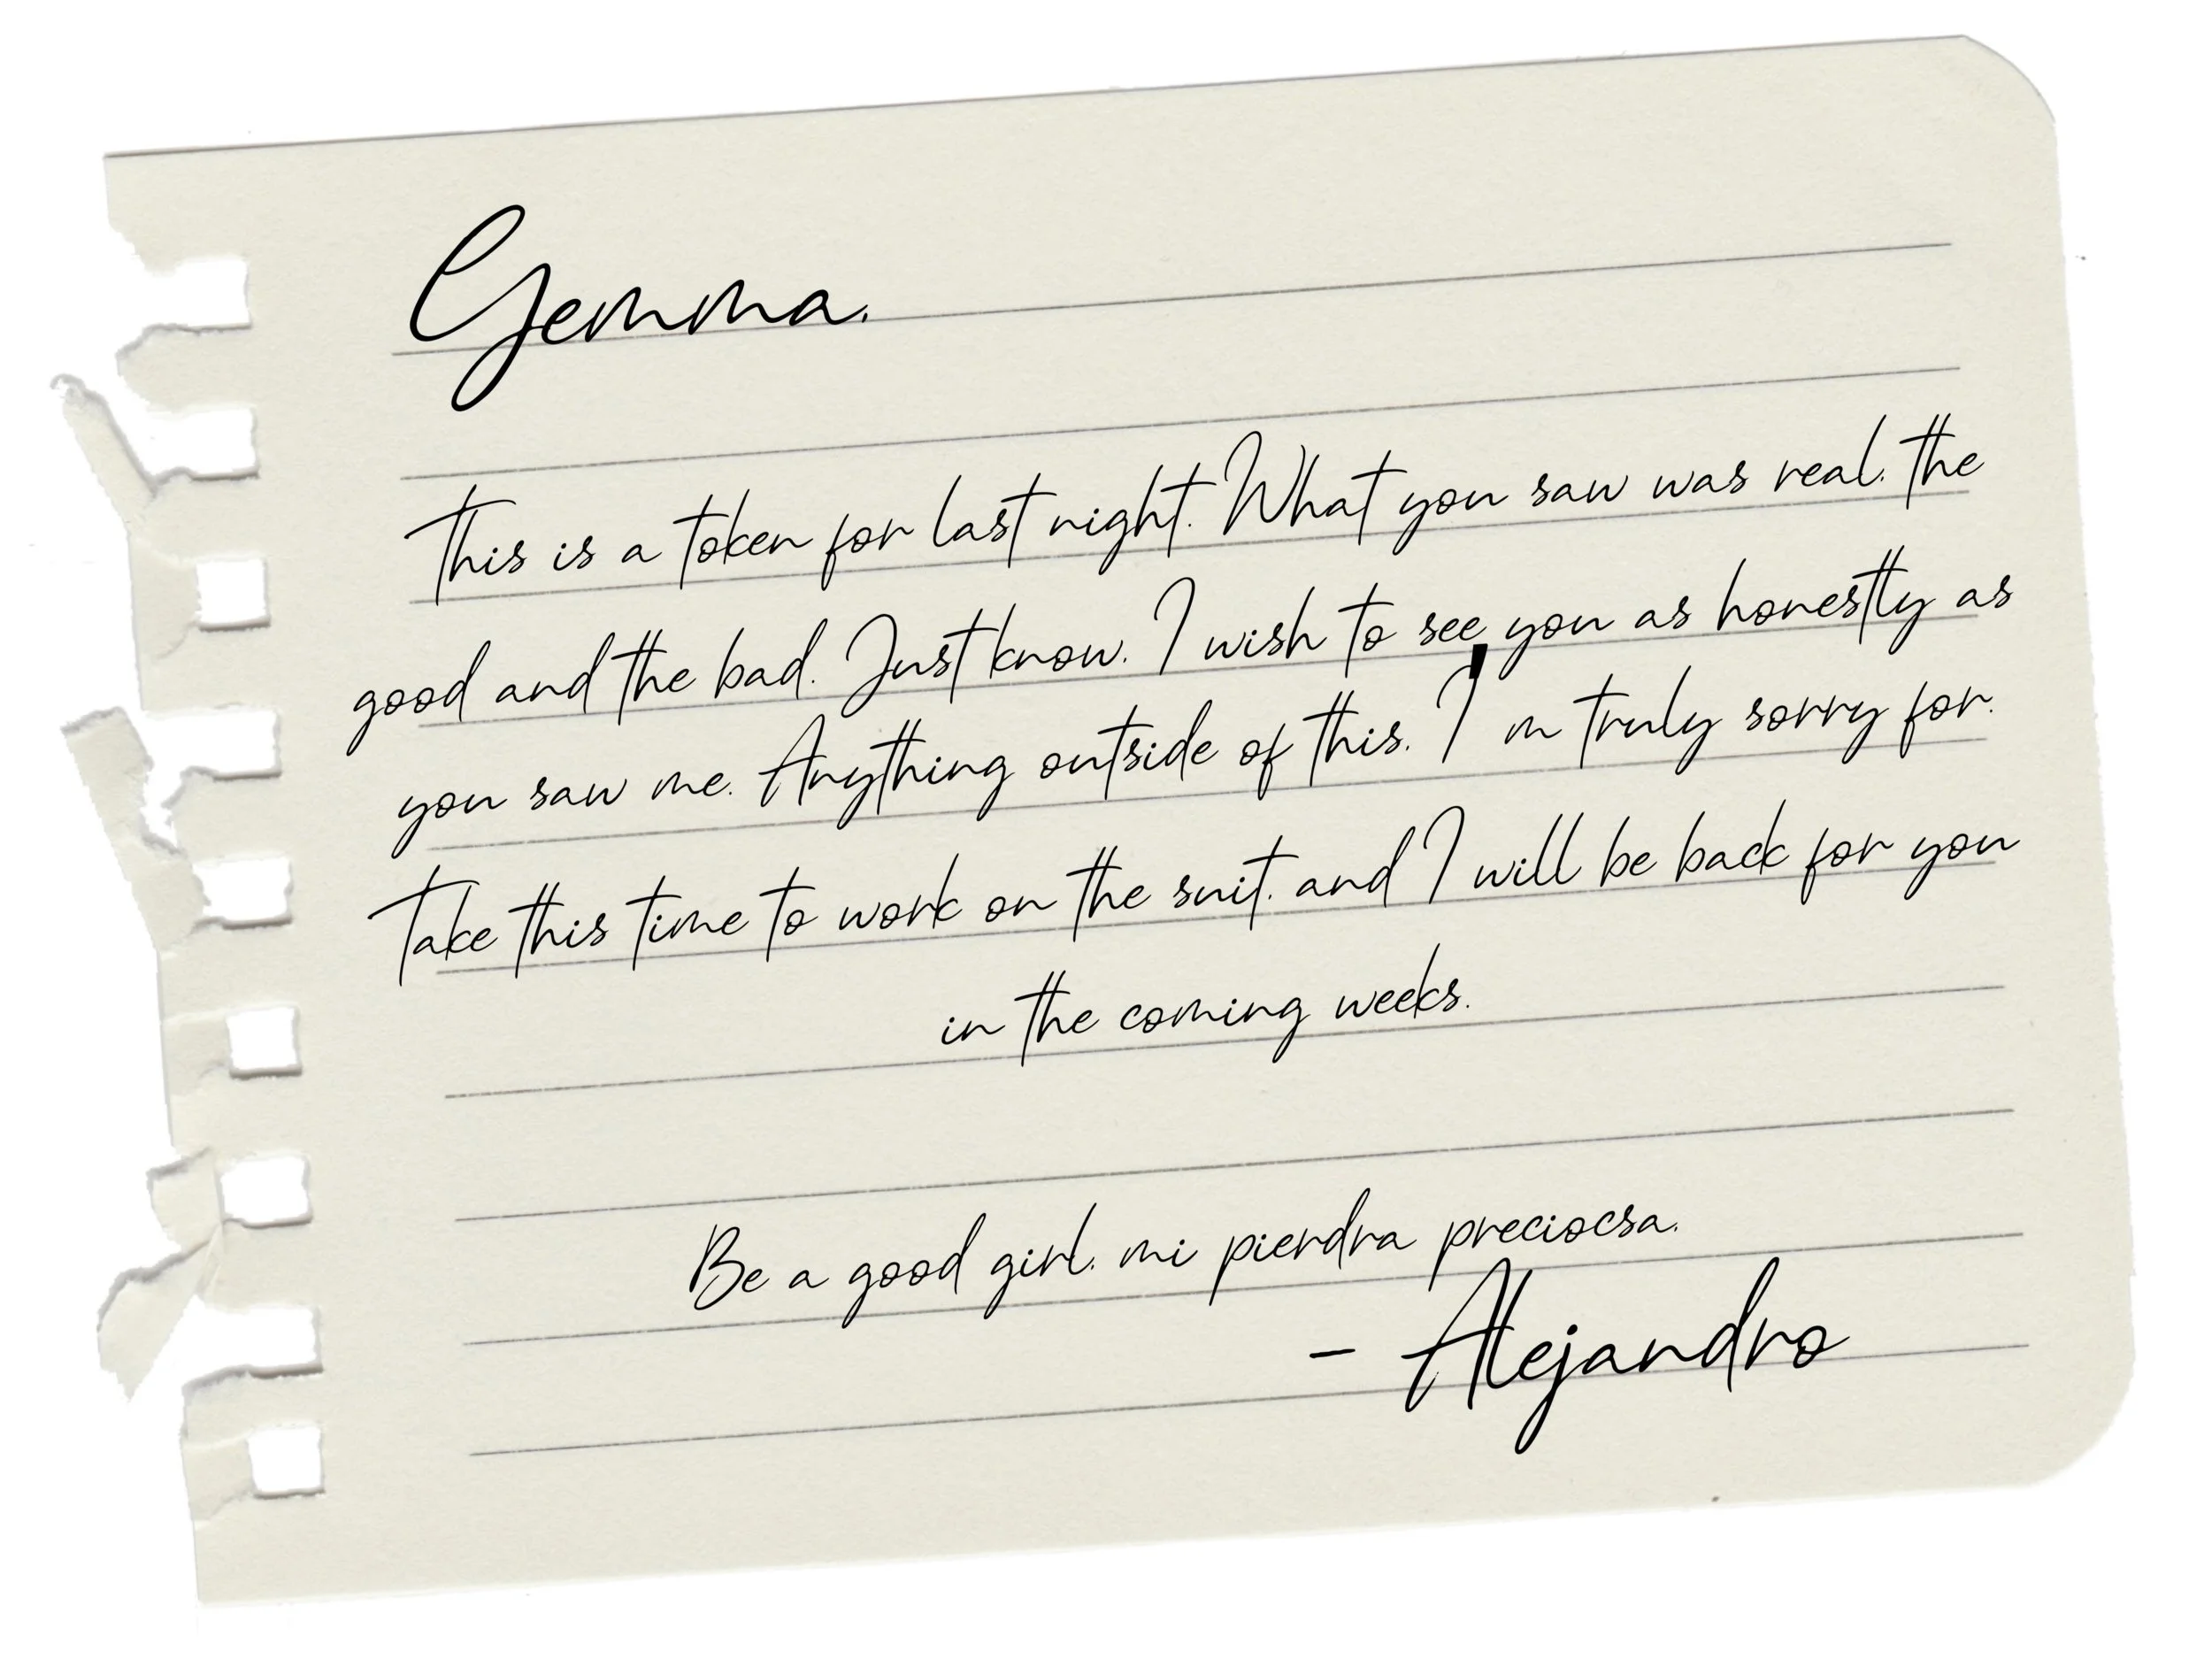 Gemma,
This is a token for last night. What you saw was real, the
good and the bad. Just know, I wish to see you as honestly as
you saw me. Anything outside of this, I'm truly sorry for.
Take this time to work on the suit, and I will be back for you
in the coming weeks.
Be a good girl, mi pierdra preciocsa.
- Alejandro